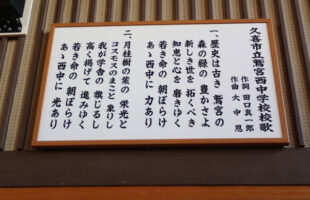 久喜市立鷲宮西中学校校歌
作詞 田口真一郎
作曲 大中恩
一、歴史は古き 鷲宮の
森の緑の 豊かさよ
新しき世を 拓くべき
知恵と心を 磨きゆく
若き命の 朝ぼらけ
あゝ西中に 力あり
二、月桂樹の葉の 栄光と
コスモスのまこと 象りし
我が学舎の 旗じるし
高く掲げて 進みゆく
若き命の 朝ぼらけ
あゝ西中に 光あり